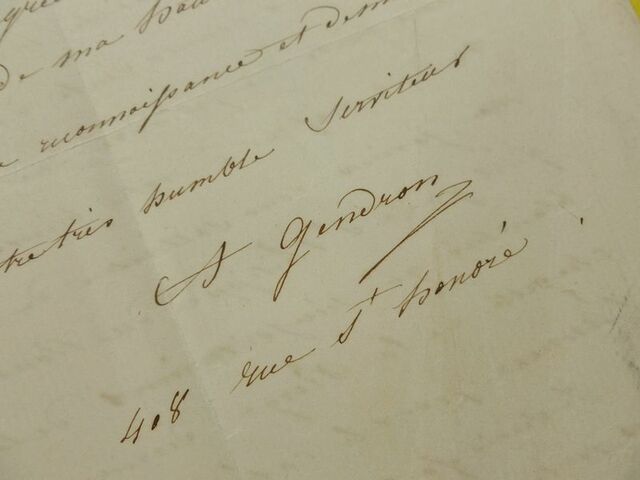 de ma hau
reconnaissance et de m
tre très humble Serviteur
A Gendron
408 rue St honoré